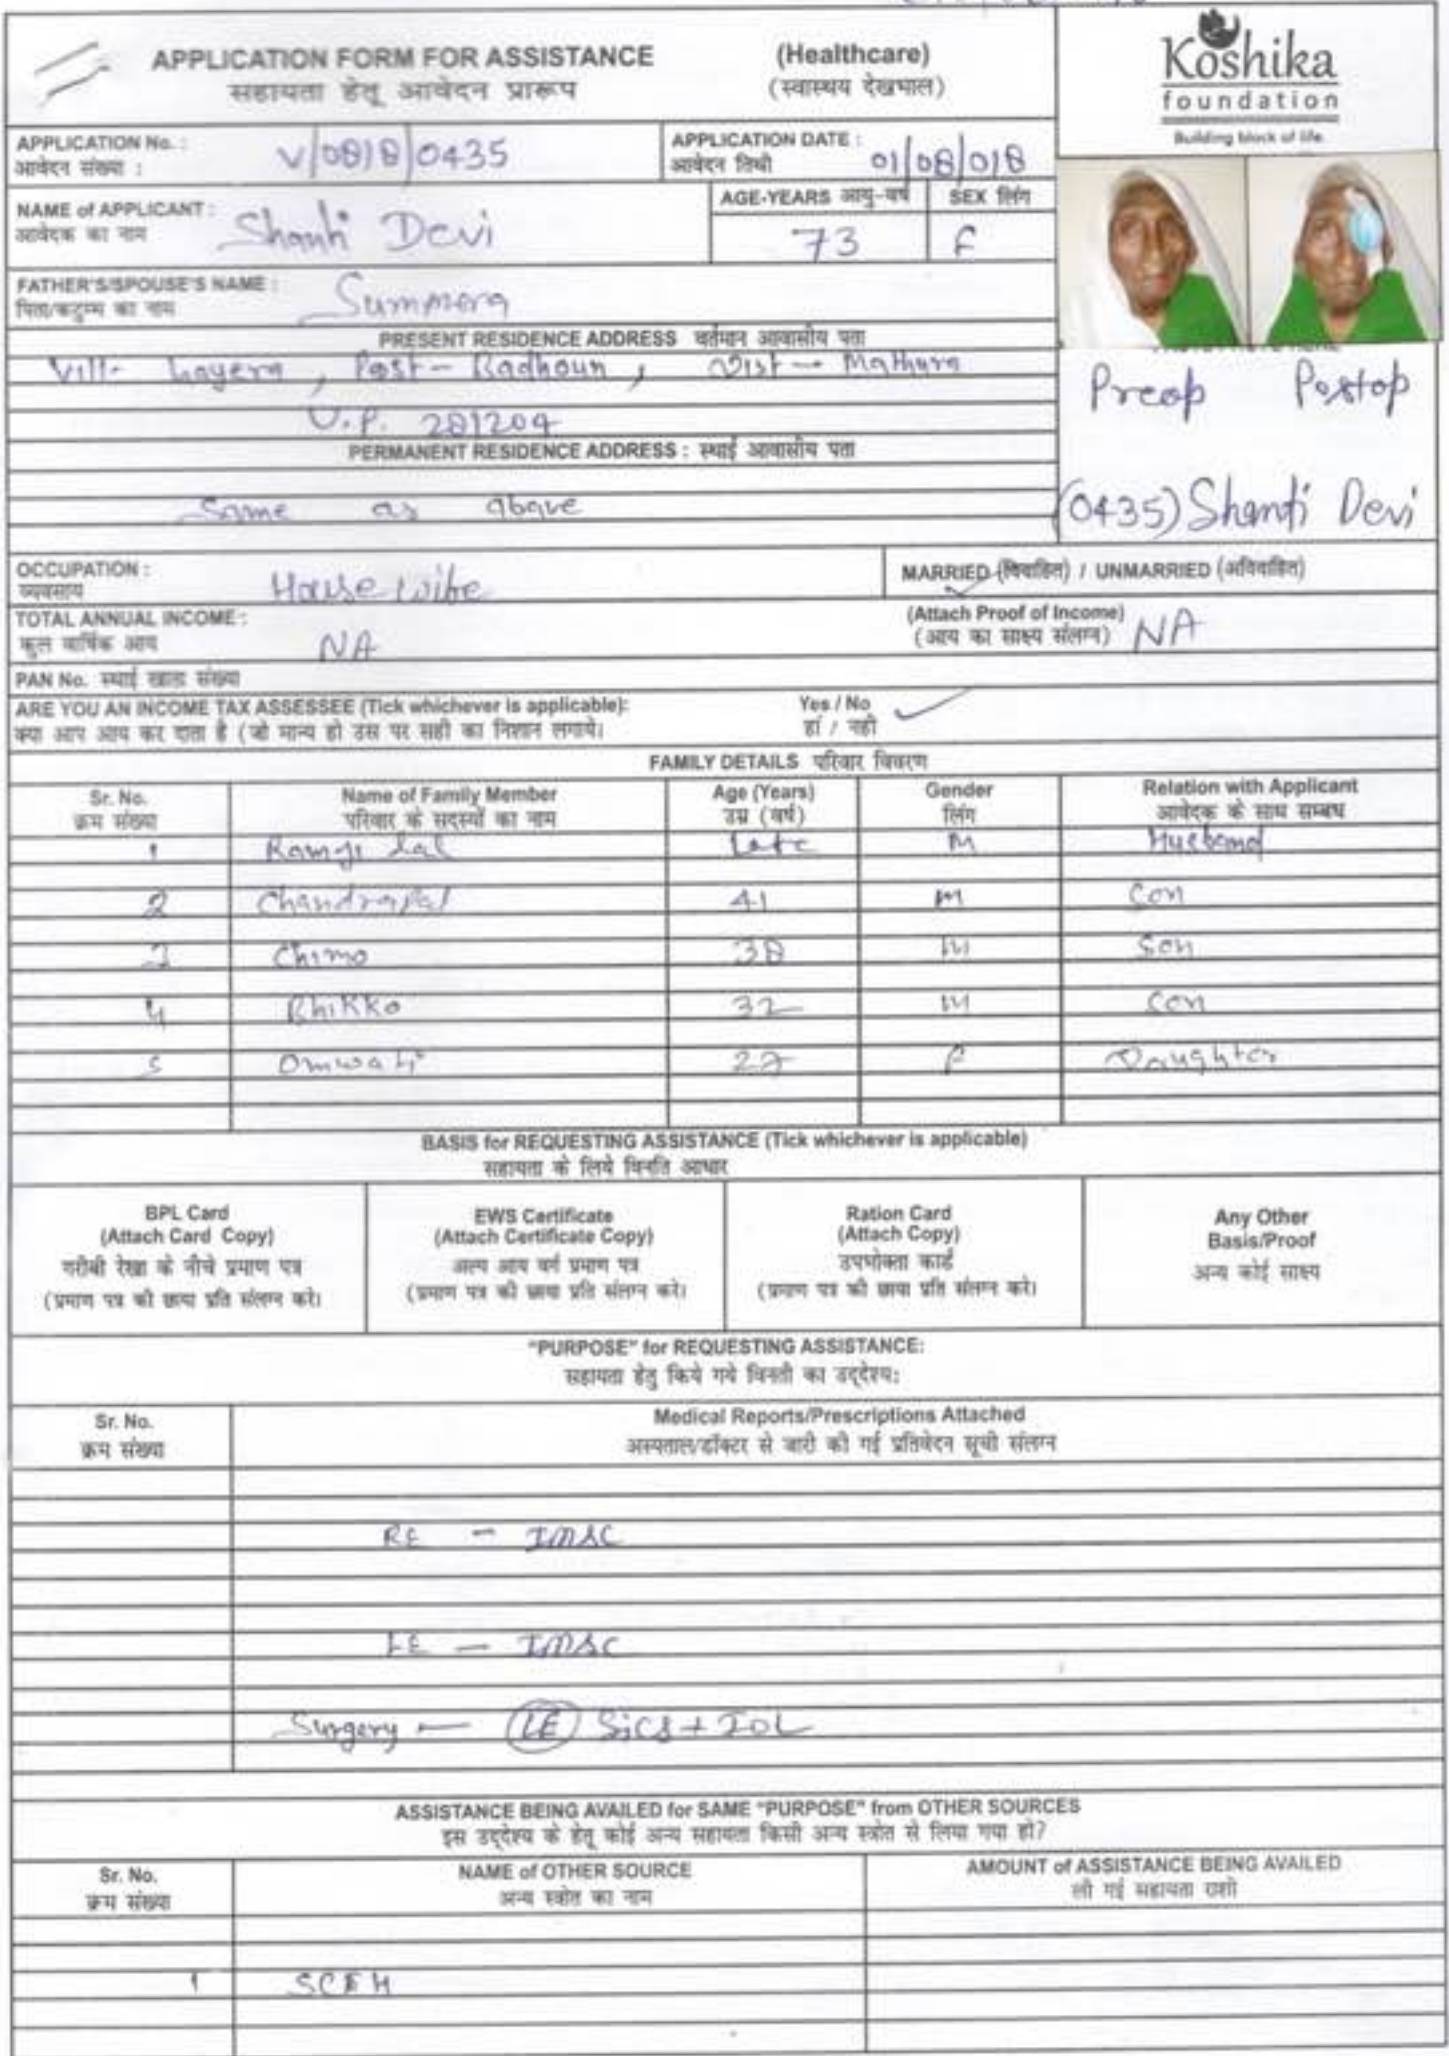 APPLICATION FORM FOR ASSISTANCE (Healthcare)
सहायता हेतू आवेदन प्रारूप (स्वास्थय देखभाल)
Koshika
foundation
Building block of life
APPLICATION No. : V/0818/0435
आवेदन संख्या :
APPLICATION DATE : 01/08/018
आवेदन तिथी
NAME of APPLICANT : Shanti Devi
आवेदक का नाम
AGE-YEARS आयु-वर्ष 73
SEX लिंग F
FATHER'S/SPOUSE'S NAME : Summera
पिता/कटुम्ब का नाम
PRESENT RESIDENCE ADDRESS वर्तमान आवासीय पता
Vill- Layera, Post- Radhoun, Dist - Mathura
U.P. 281204
PERMANENT RESIDENCE ADDRESS : स्थाई आवासीय पता
Same as above
Preop Postop
(0435) Shanti Devi
OCCUPATION : House wife
व्यवसाय
MARRIED (विवाहित) / UNMARRIED (अविवाहित)
TOTAL ANNUAL INCOME : NA
कुल वार्षिक आय
(Attach Proof of Income) NA
(आय का साक्ष्य संलग्न)
PAN No. स्थाई खाता संख्या
ARE YOU AN INCOME TAX ASSESSEE (Tick whichever is applicable): Yes / No
क्या आप आय कर दाता है (जो मान्य हो उस पर सही का निशान लगाये। हां / नही
FAMILY DETAILS परिवार विवरण
Sr. No. Name of Family Member Age (Years) Gender Relation with Applicant
क्रम संख्या परिवार के सदस्यों का नाम उम्र (वर्ष) लिंग आवेदक के साथ सम्बध
1 Ramji Lal Late M Husband
2 Chandrapal 41 M Son
3 Chimo 38 M Son
4 Bhikko 32 M Son
5 Omwati 27 F Daughter
BASIS for REQUESTING ASSISTANCE (Tick whichever is applicable)
सहायता के लिये विनति आधार
BPL Card
(Attach Card Copy)
गरीबी रेखा के नीचे प्रमाण पत्र
(प्रमाण पत्र की छाया प्रति संलग्न करे।
EWS Certificate
(Attach Certificate Copy)
अल्प आय वर्ग प्रमाण पत्र
(प्रमाण पत्र की छाया प्रति संलग्न करे।
Ration Card
(Attach Copy)
उपभोक्ता कार्ड
(प्रमाण पत्र की छाया प्रति संलग्न करे।
Any Other
Basis/Proof
अन्य कोई साक्ष्य
"PURPOSE" for REQUESTING ASSISTANCE:
सहायता हेतु किये गये विनती का उद्देश्य:
Sr. No. Medical Reports/Prescriptions Attached
क्रम संख्या अस्पताल/डॉक्टर से जारी की गई प्रतिवेदन सूची संलग्न
RE - IMSC
LE - IMSC
Surgery - LE SICS + IOL
ASSISTANCE BEING AVAILED for SAME "PURPOSE" from OTHER SOURCES
इस उद्देश्य के हेतू कोई अन्य सहायता किसी अन्य स्त्रोत से लिया गया हो?
Sr. No. NAME of OTHER SOURCE AMOUNT of ASSISTANCE BEING AVAILED
क्रम संख्या अन्य स्त्रोत का नाम ली गई सहायता राशी
1 SCEH